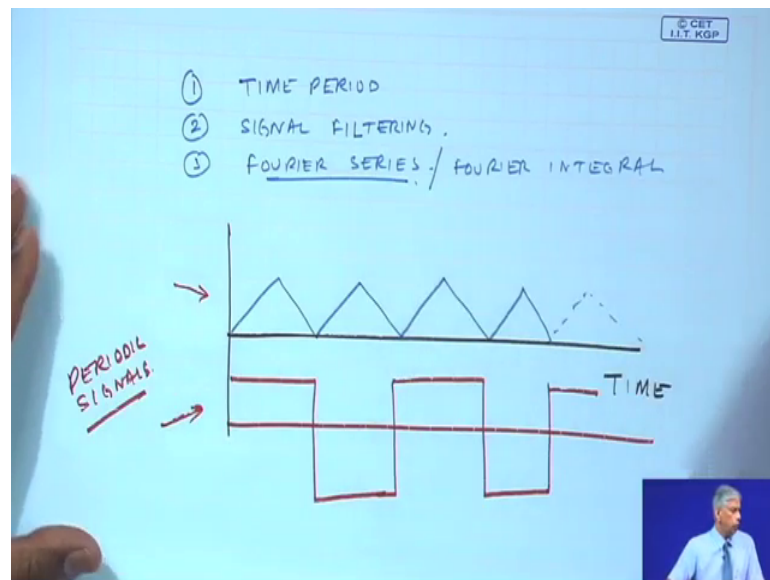 © CET
I.I.T. KGP
① TIME PERIOD
② SIGNAL FILTERING.
③ FOURIER SERIES. / FOURIER INTEGRAL
PERIODIC
SIGNALS.
TIME